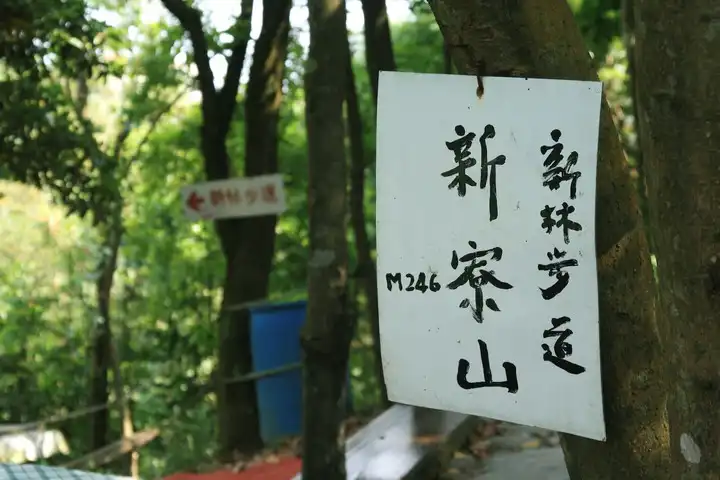 新林步道
新寮山
M246
新林步道